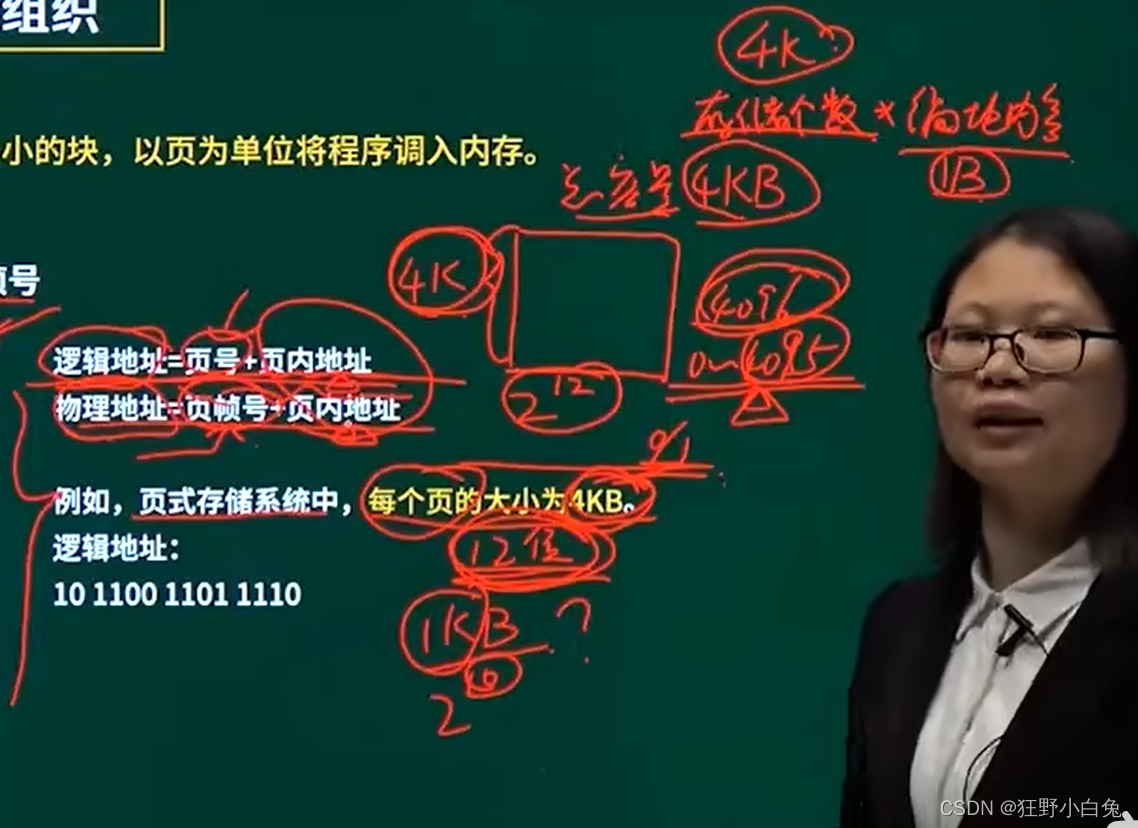 组织
4K
存储个数 * 编址内容
小的块，以页为单位将程序调入内存。
1B
总容量 4KB
帧号
4K
4096
0~4095
逻辑地址=页号+页内地址
2^12
物理地址=页帧号+页内地址
例如，页式存储系统中，每个页的大小为4KB。
逻辑地址：
12位
10 1100 1101 1110
1KB ?
10
2
CSDN @狂野小白兔